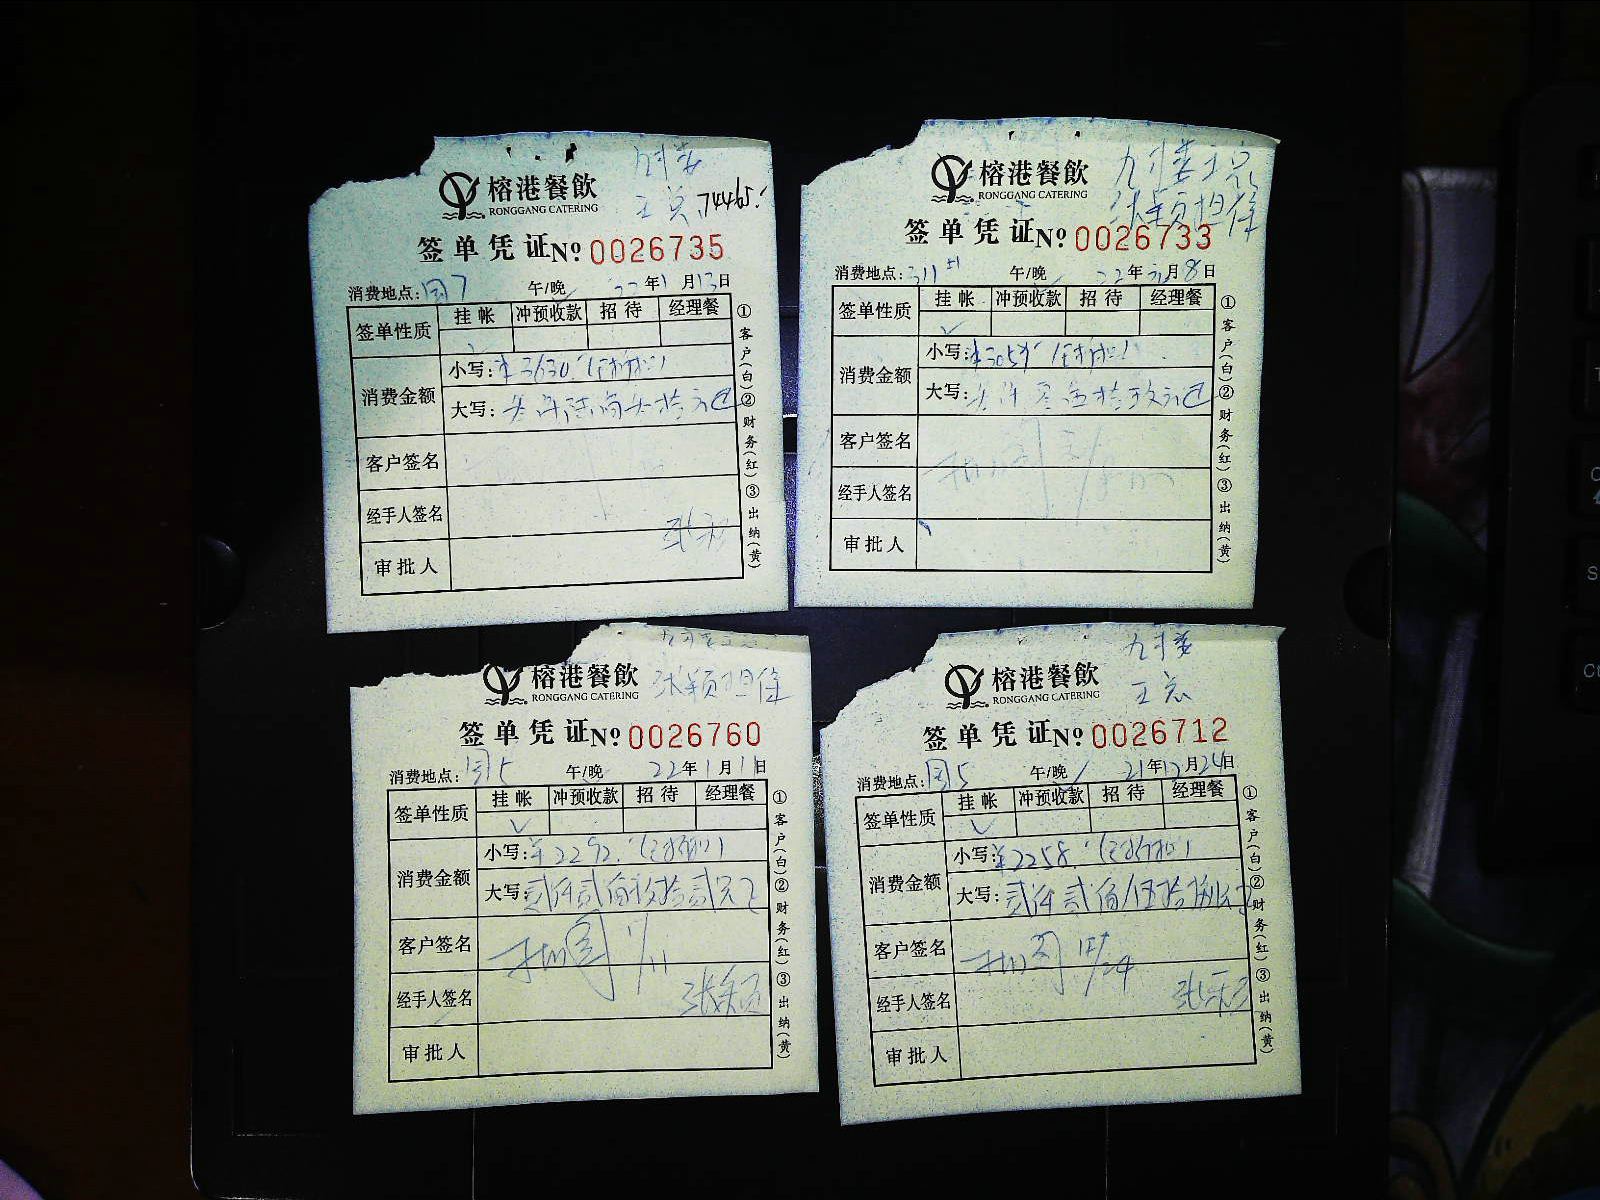 榕港餐飲
RONGGANG CATERING
74465.
签单凭证 № 0026735
消费地点: 国7 午/晚 22年1月13日
签单性质 挂帐 冲预收款 招待 经理餐
消费金额 小写: ¥3630.
大写:
客户签名
经手人签名
审批人
①客户(白)②财务(红)③出纳(黄)
张颖担保
榕港餐飲
RONGGANG CATERING
签单凭证 № 0026733
消费地点: 311 午/晚 22年 月8日
签单性质 挂帐 冲预收款 招待 经理餐
消费金额 小写: ¥3059
大写:
客户签名
经手人签名
审批人
①客户(白)②财务(红)③出纳(黄)
榕港餐飲 张颖担保
RONGGANG CATERING
签单凭证 № 0026760
消费地点: 国5 午/晚 22年1月11日
签单性质 挂帐 冲预收款 招待 经理餐
消费金额 小写: ¥2292.
大写: 贰仟贰佰玖拾贰元
客户签名 1/11
经手人签名 张颖
审批人
①客户(白)②财务(红)③出纳(黄)
榕港餐飲
RONGGANG CATERING
签单凭证 № 0026712
消费地点: 国5 午/晚 21年12月24日
签单性质 挂帐 冲预收款 招待 经理餐
消费金额 小写: ¥2258.
大写: 贰仟贰佰伍拾捌
客户签名 12/24
经手人签名 张颖
审批人
①客户(白)②财务(红)③出纳(黄)